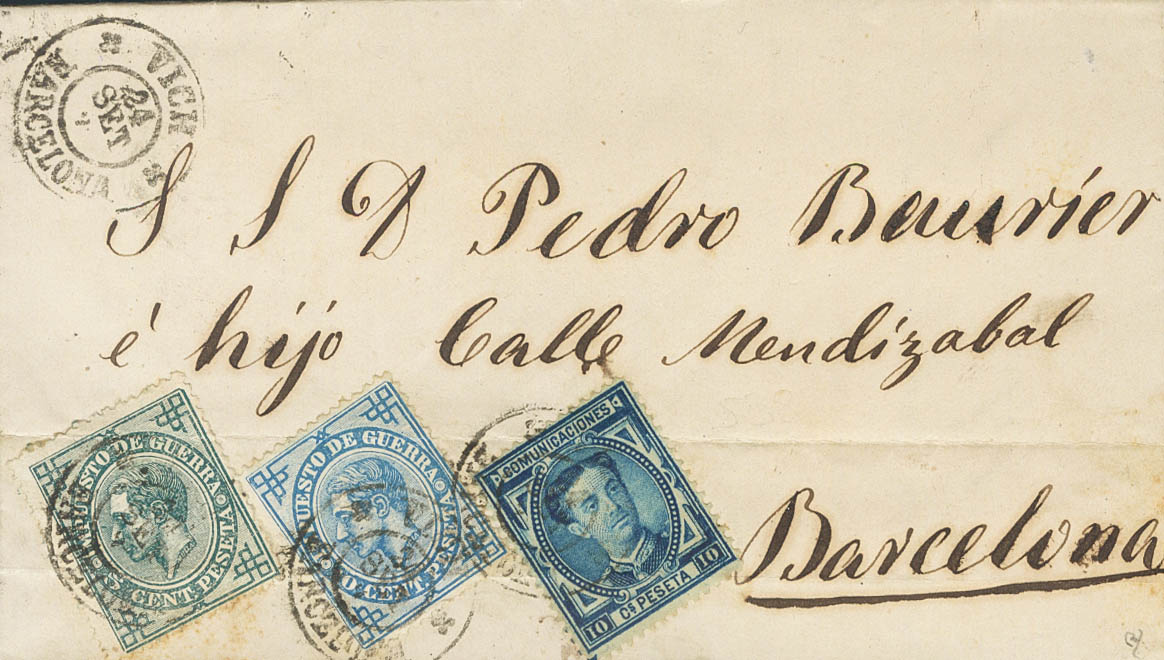 VICH
24
SET
BARCELONA
S S D Pedro Bourier
é hijo Calle Mendizabal
Barcelona
IMPUESTO DE GUERRA
5 CENT. PESETA
IMPUESTO DE GUERRA
10 CENT PESETA
COMUNICACIONES
10 Cs PESETA 10